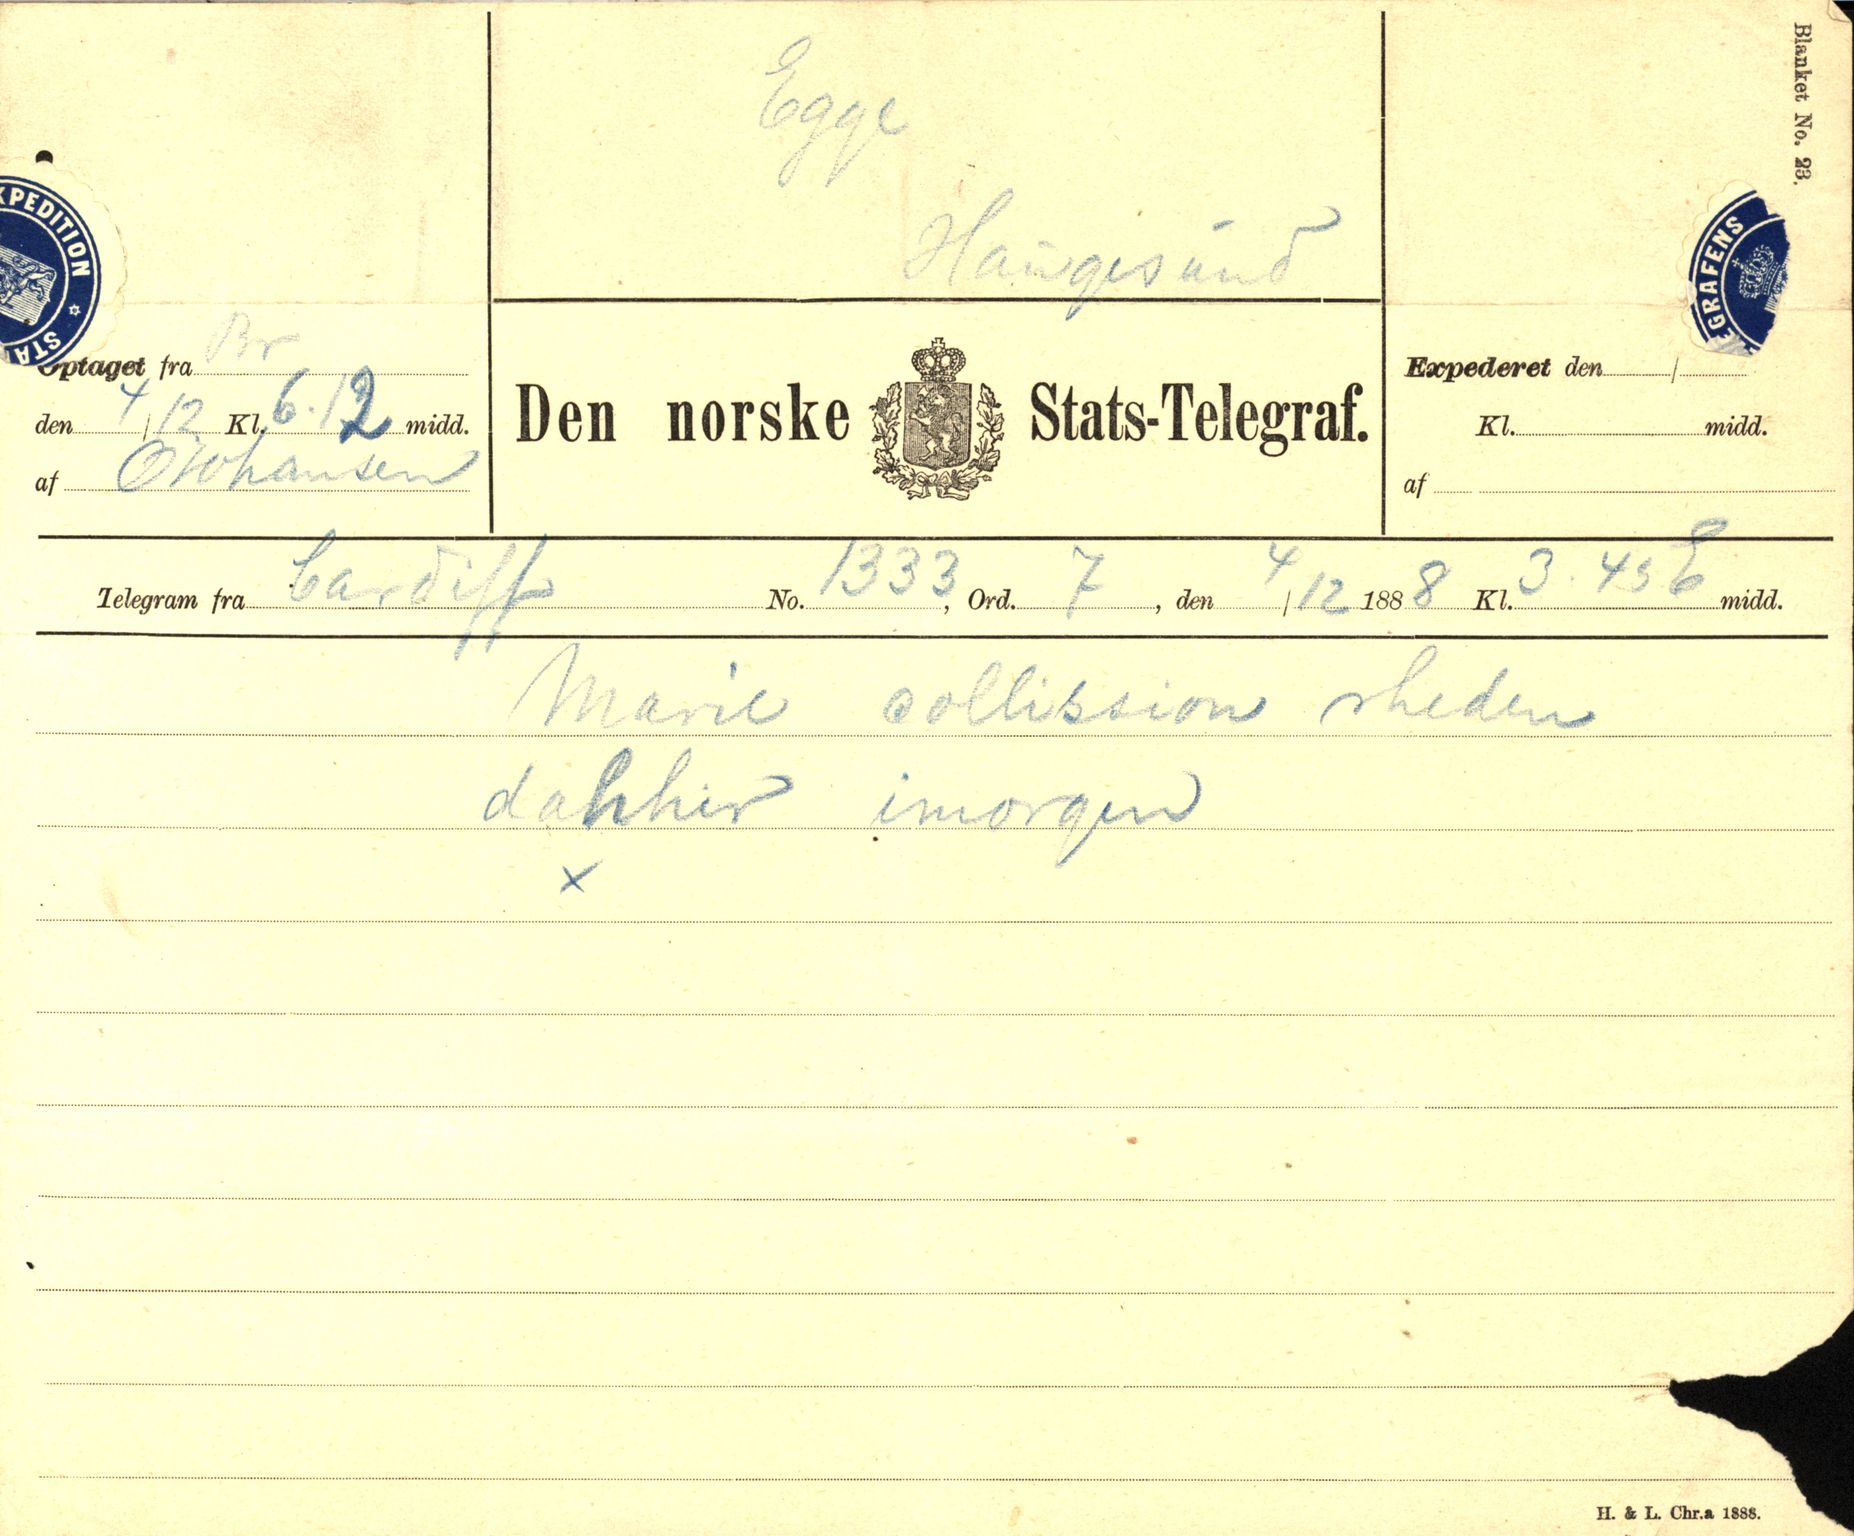 Blanket No. 23.
Egge
Haugesund
KPEDITION
STA
EGRAFENS
Optaget fra Br
den 4/12 Kl. 6.12 midd.
af Johansen
Den norske Stats-Telegraf.
Expederet den /
Kl. midd.
af
Telegram fra Cardiff No. 1333, Ord. 7, den 4/12 1888 Kl. 3.45 E midd.
Marie collission rheden
dokker imorgen
x
H. & L. Chr.a 1888.